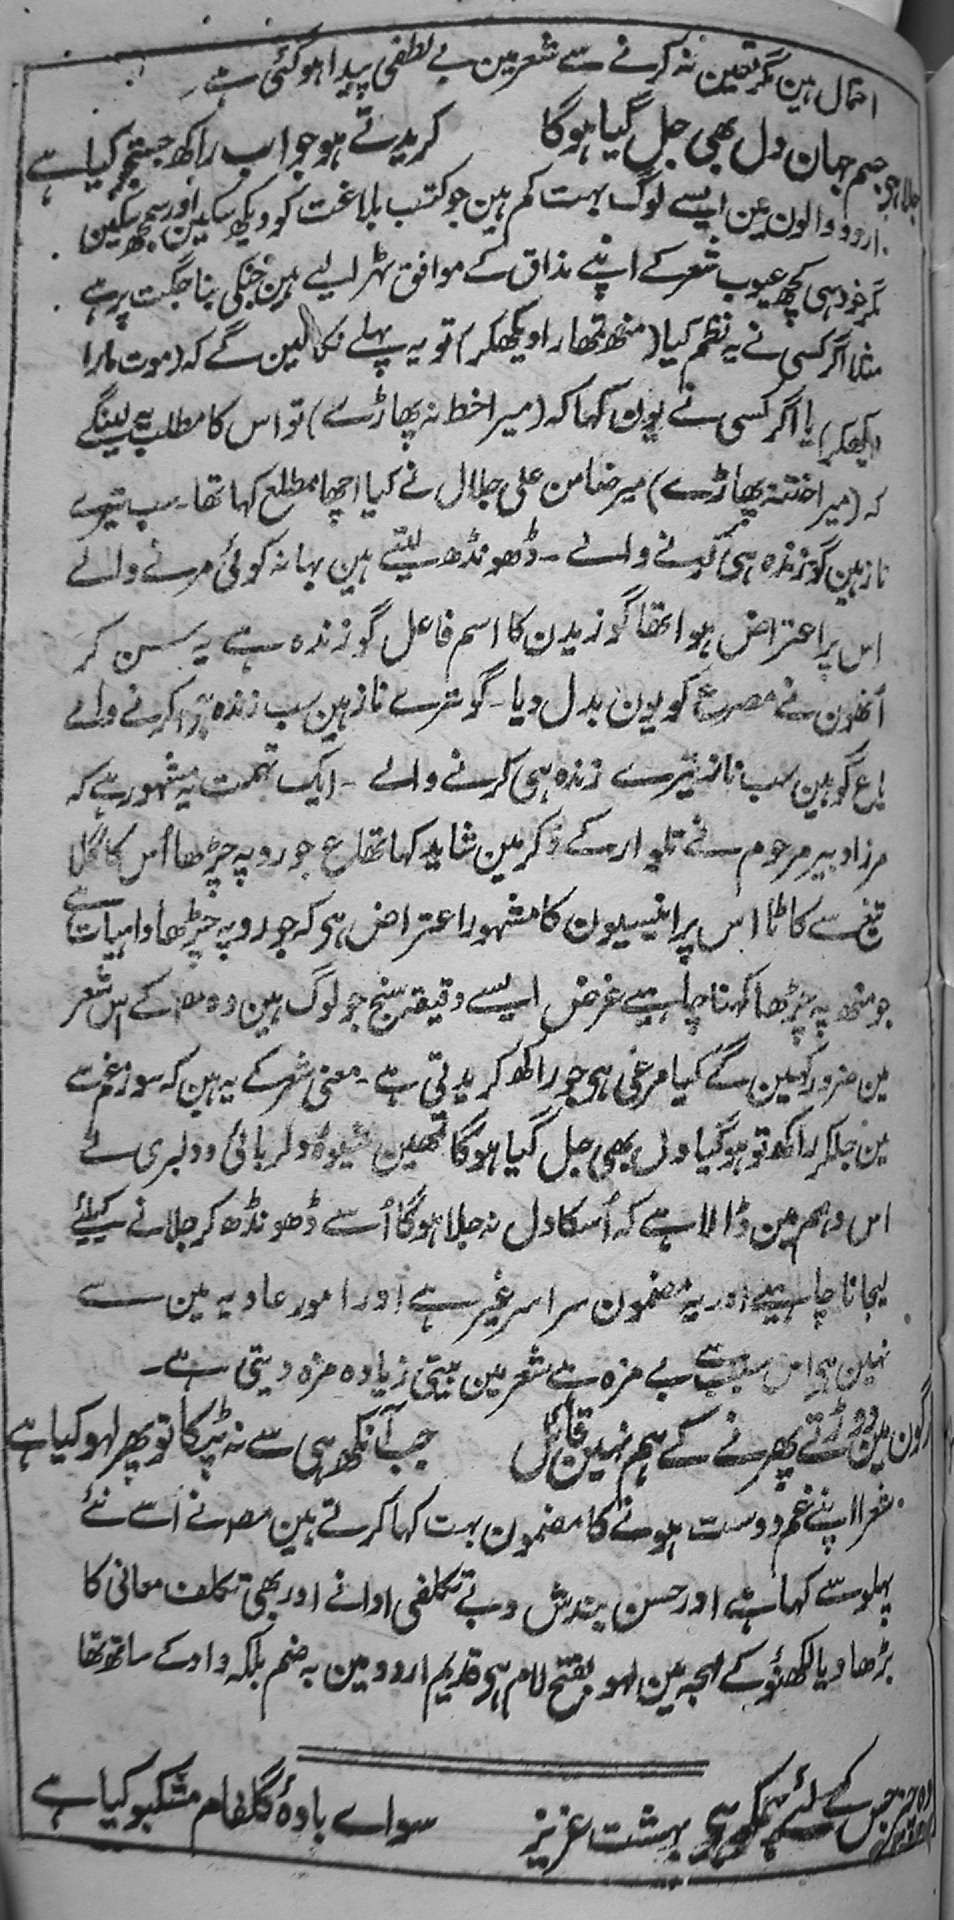 احتمال ہین مگر تعین نہ کرنے سے شعر مین بے لطفی پیدا ہوگئی ہے
جلا ہی جسم جہان دل بھی جل گیا ہوگا کریدتے ہو جو اب راکھ جستجو کیا ہے
اردو والون مین ایسے لوگ بہت کم ہین جو کتب بلاغت کو دیکھ سکین اور سمجھ سکین
مگر خود ہی کچھ عیوب شعر کے اپنے مذاق کے موافق ٹہرا لیے ہین جنکی بنا جگت پر ہے
مثلا اگر کسی نے یہ نظم کیا (منھ تمھارا دیکھکر) تو یہ پہلے نکالین گے کہ (موت مارا
دیکھکر) یا اگر کسی نے یون کہا کہ (میرا خط نہ پھاڑے) تو اس کا مطلب یہ لینگے
کہ (میرا ختنہ پھاڑے) میر ضامن علی جلال نے کیا اچھا مطلع کہا تھا۔ سب تیرے
ناز ہین گو زندہ ہی کرنے والے ۔ ڈھونڈھ لیتے ہین بہانہ کوئی مرنے والے
اس پر اعتراض ہوا تھا گوزیدن کا اسم فاعل گوزندہ ہے یہ سن کر
اُنھون نے مصرع کو یون بدل دیا۔ گو ترے ناز ہین سب زندہ کرنے والے
یا ع گو ہین سب ناز تیرے زندہ ہی کرنے والے ۔ ایک تہمت یہ مشہور ہے کہ
مرزا دبیر مرحوم نے تلوار کے ذکر مین شاید کہا تھا ع جو رو پہ چڑھا اُس کا گلا
تیغ سے کاٹا اس پر انیسیون کا مشہور اعتراض ہی کہ جو رو پہ چڑھا واہیات ہے
جو منھ پہ چڑھا کہنا چاہیے غرض ایسے دقیقہ سنج جو لوگ ہین وہ مصہ کے اس شعر
مین ضرور کہین گے کیا مرغی ہی جو راکھ کریدتی ہے ۔ معنی شعر کے یہ ہین کہ سوز غم سے
مین جلکر راکھ تو ہوگیا دل بھی جل گیا ہوگا تمھین شیوۂ دلربائی و دلبری نے
اس وہم مین ڈالا ہے کہ اُسکا دل نہ جلا ہوگا اُسے ڈھونڈھ کر جلانے کیلئے
لیجانا چاہیے اور یہ مضمون سراسر غیر ہے اور امور عادیہ مین سے
نہین ہی اس سبب سے بے مزہ ہے شعر مین بیتی زیادہ مزہ دیتی ہے ۔
رگون مین دوڑتے پھرنے کے ہم نہین قائل جب آنکھ ہی سے نہ ٹپکا تو پھر لہو کیا ہے
شعرا اپنے غم دوست ہونے کا مضمون بہت کہا کرتے ہین مصہ نے اُسے نئے
پہلو سے کہا ہے اور حسن بندش و بے تکلفی ادا نے اور بھی تکلف معانی کا
بڑھا دیا لکھنؤ کے لہجہ مین لہو بفتح لام ہی قدیم اردو مین بہ ضم بلکہ واو کے ساتھ تھا
وہ چیز جس کے لئے ہمکو ہی بہشت عزیز سواے بادۂ گلفام مشکبو کیا ہے